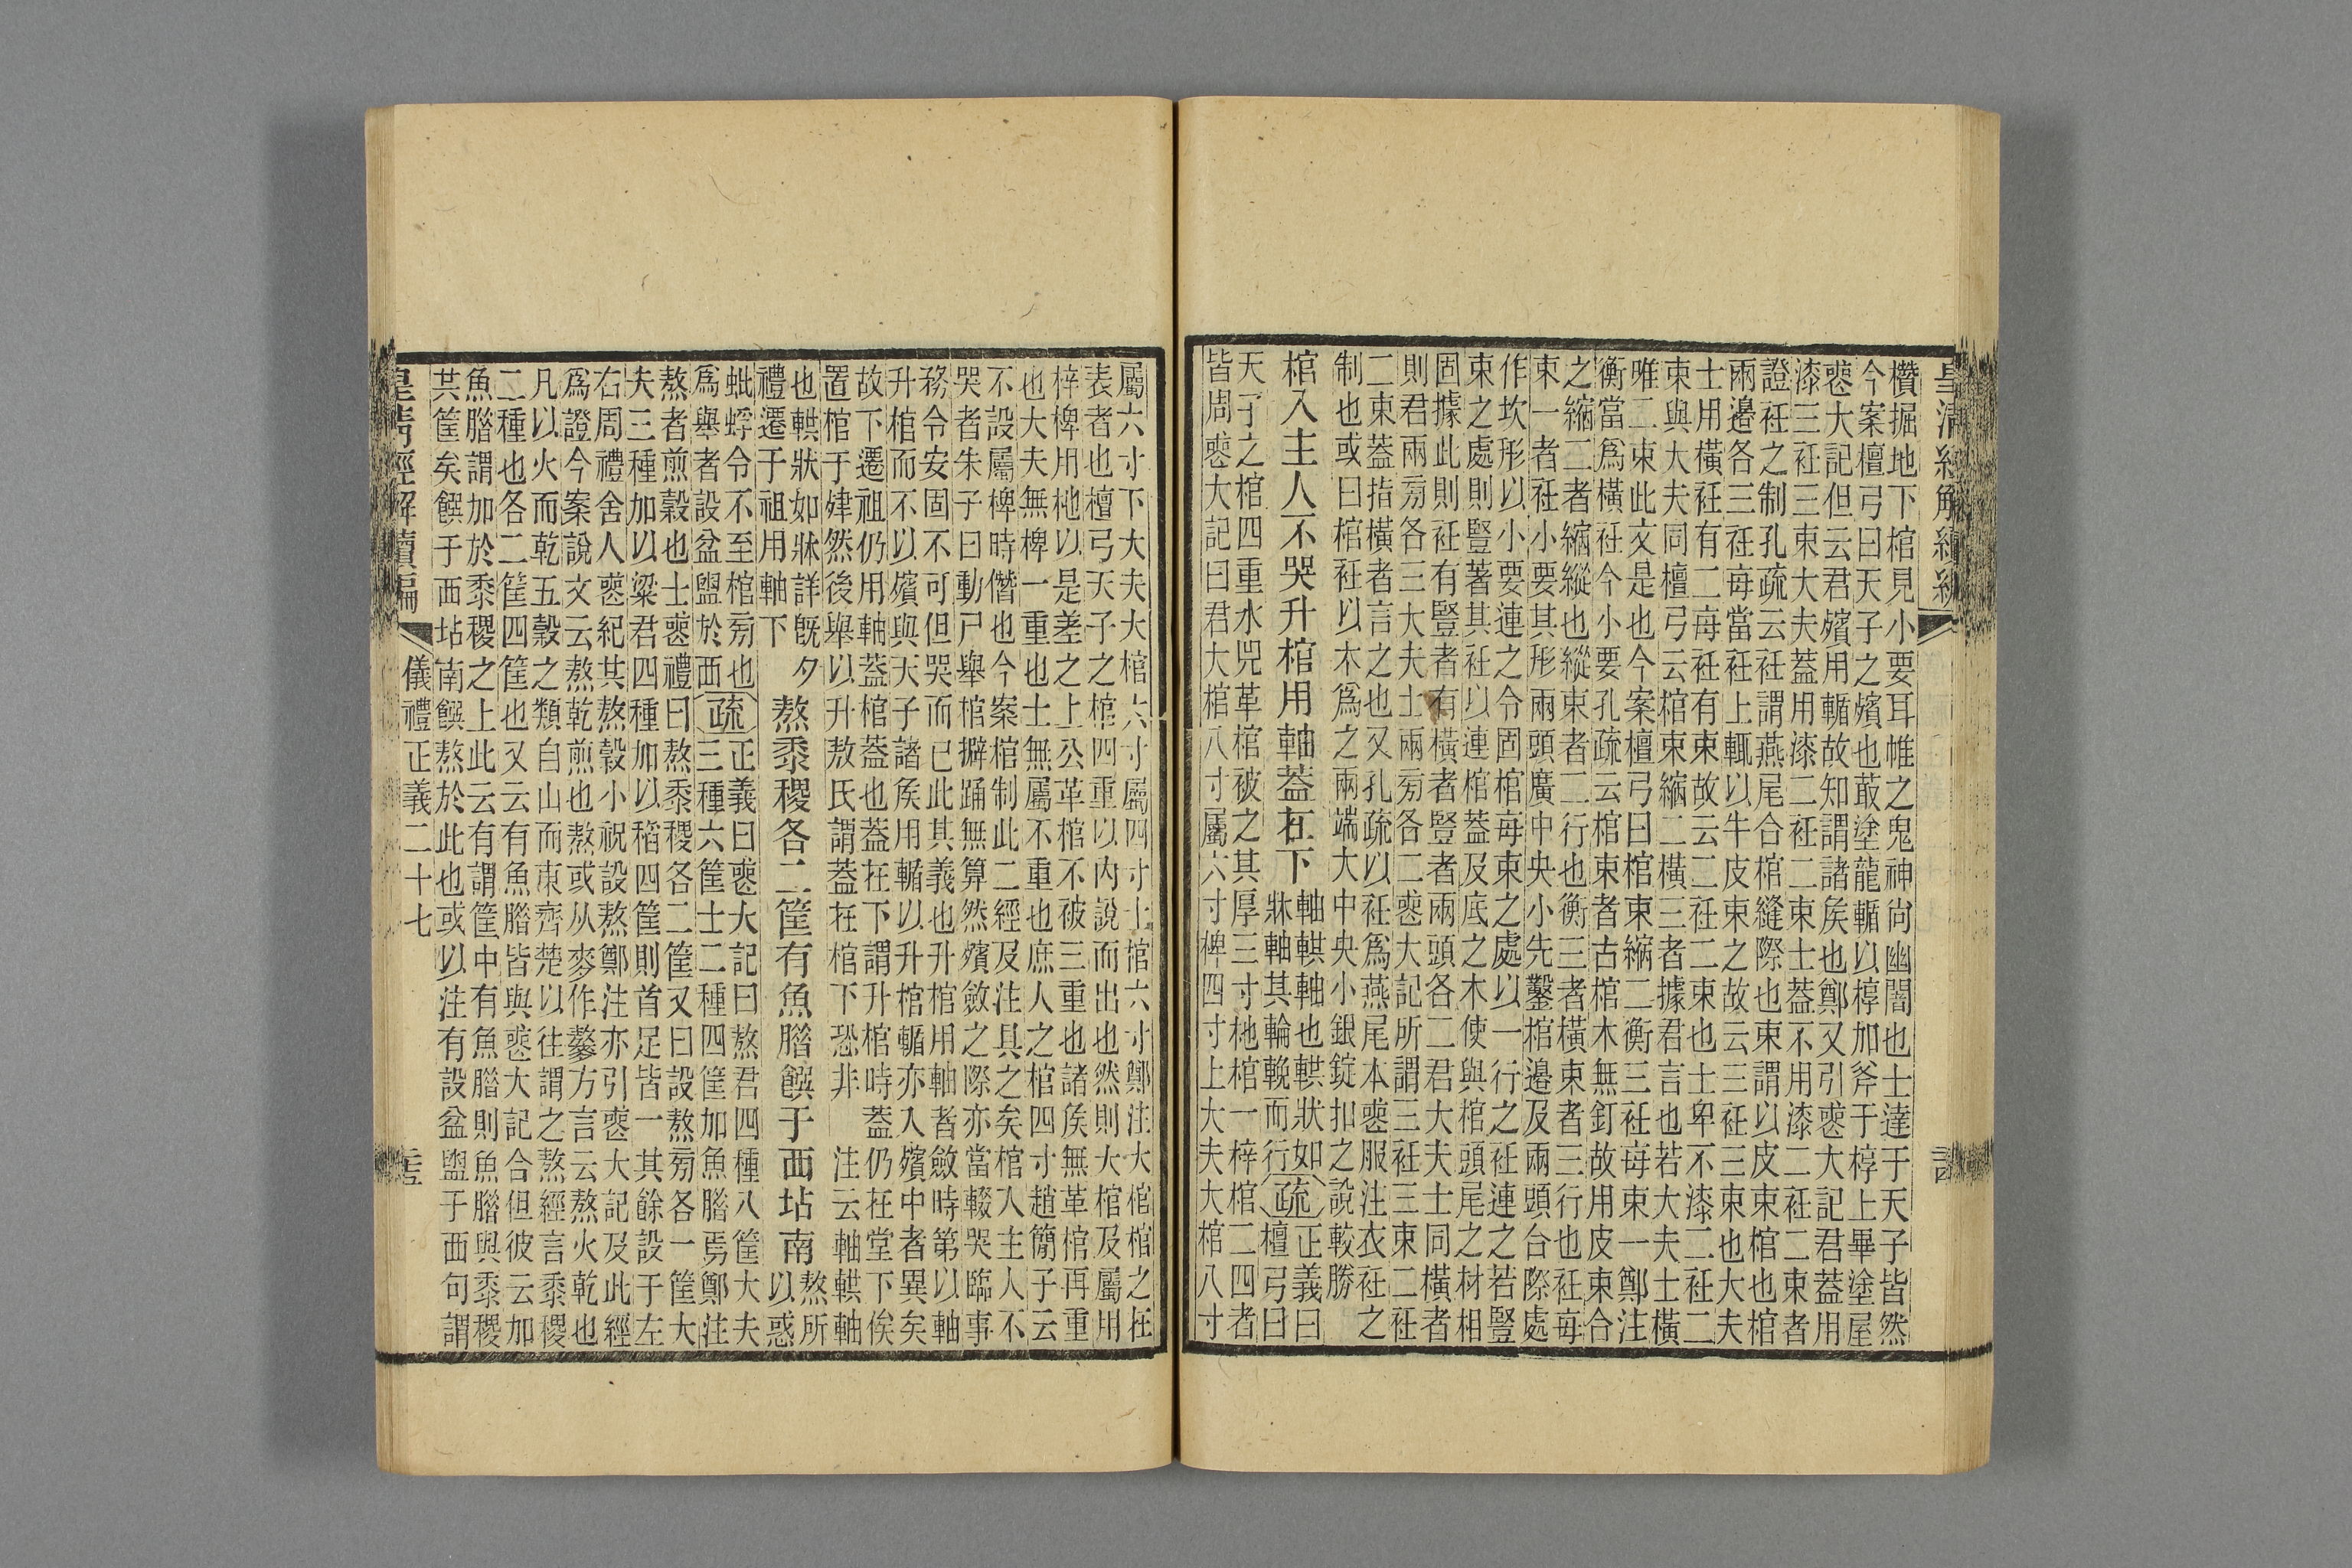 欑掘地下棺見小要耳帷之鬼神尙幽闇也士達于天子皆然
今案檀弓曰天子之殯也菆塗龍輴以椁加斧于椁上畢塗屋
喪大記但云君殯用輴故知謂諸矦也鄭又引喪大記君蓋用
漆三衽三束大夫蓋用漆二衽二束士蓋不用漆二衽二束者
證衽之制孔疏云衽謂燕尾合棺縫際也束謂以皮束棺也棺
兩邊各三衽每當衽上輒以牛皮束之故云三衽三束也大夫
士用橫衽有二每衽有束故云二衽二束也士卑不漆二衽二
束與大夫同檀弓云棺束縮二橫三者據君言也若大夫士橫
唯二束此文是也今案檀弓曰棺束縮二衡三衽每束一鄭注
衡當爲橫衽今小要孔疏云棺束者古棺木無釘故用皮束合
之縮二者縮縱也縱束者二行也衡三者橫束者三行也衽每
束一者衽小要其形兩頭廣中央小先鑿棺邊及兩頭合際處
作坎形以小要連之令固棺每束之處以一行之衽連之若豎
束之處則豎著其衽以連棺蓋及底之木使與棺頭尾之材相
固據此則衽有豎者有橫者豎者兩頭各二君大夫士同橫者
則君兩㫄各三大夫士兩㫄各二喪大記所謂三衽三束二衽
二束蓋指橫者言之也又孔疏以衽爲燕尾本喪服注衣衽之
制也或曰棺衽以木爲之兩端大中央小銀錠扣之說較勝
棺入主人不哭升棺用軸蓋在下
軸輁軸也輁狀如
牀軸其輪輓而行
疏
正義曰
檀弓曰
天子之棺四重水兕革棺被之其厚三寸杝棺一梓棺二四者
皆周喪大記曰君大棺八寸屬六寸椑四寸上大夫大棺八寸
屬六寸下大夫大棺六寸屬四寸士棺六寸鄭注大棺棺之在
表者也檀弓天子之棺四重以內說而出也然則大棺及屬用
梓椑用杝以是差之上公革棺不被三重也諸矦無革棺再重
也大夫無椑一重也士無屬不重也庶人之棺四寸趙簡子云
不設屬椑時僭也今案棺制此二經及注具之矣棺入主人不
哭者朱子曰動尸舉棺擗踊無算然殯斂之際亦當輟哭臨事
務令安固不可但哭而已此其義也升棺用軸者斂時第以軸
升棺而不以殯與天子諸矦用輴以升棺輴亦入殯中者異矣
故下遷祖仍用軸蓋棺蓋也蓋在下謂升棺時蓋仍在堂下俟
置棺于肂然後舉以升敖氏謂蓋在棺下恐非注云軸輁軸
也輁狀如牀詳旣夕
禮遷于祖用軸下
熬黍稷各二筐有魚腊饌于西坫南
熬所
以惑
蚍蜉令不至棺㫄也
爲舉者設盆盥於西
疏
正義曰喪大記曰熬君四種八筐大夫
三種六筐士二種四筐加魚腊焉鄭注
熬者煎穀也士喪禮曰熬黍稷各二筐又曰設熬㫄各一筐大
夫三種加以粱君四種加以稻四筐則首足皆一其餘設于左
右周禮舍人喪紀其熬穀小祝設熬鄭注亦引喪大記及此經
爲證今案說文云熬乾煎也熬或从麥作𪍷方言云熬火乾也
凡以火而乾五穀之類自山而東齊楚以往謂之熬經言黍稷
二種也各二筐四筐也又云有魚腊皆與喪大記合但彼云加
魚腊謂加於黍稷之上此云有謂筐中有魚腊則魚腊與黍稷
共筐矣饌于西坫南饌熬於此也或以注有設盆盥于西句謂
儀禮正義二十七